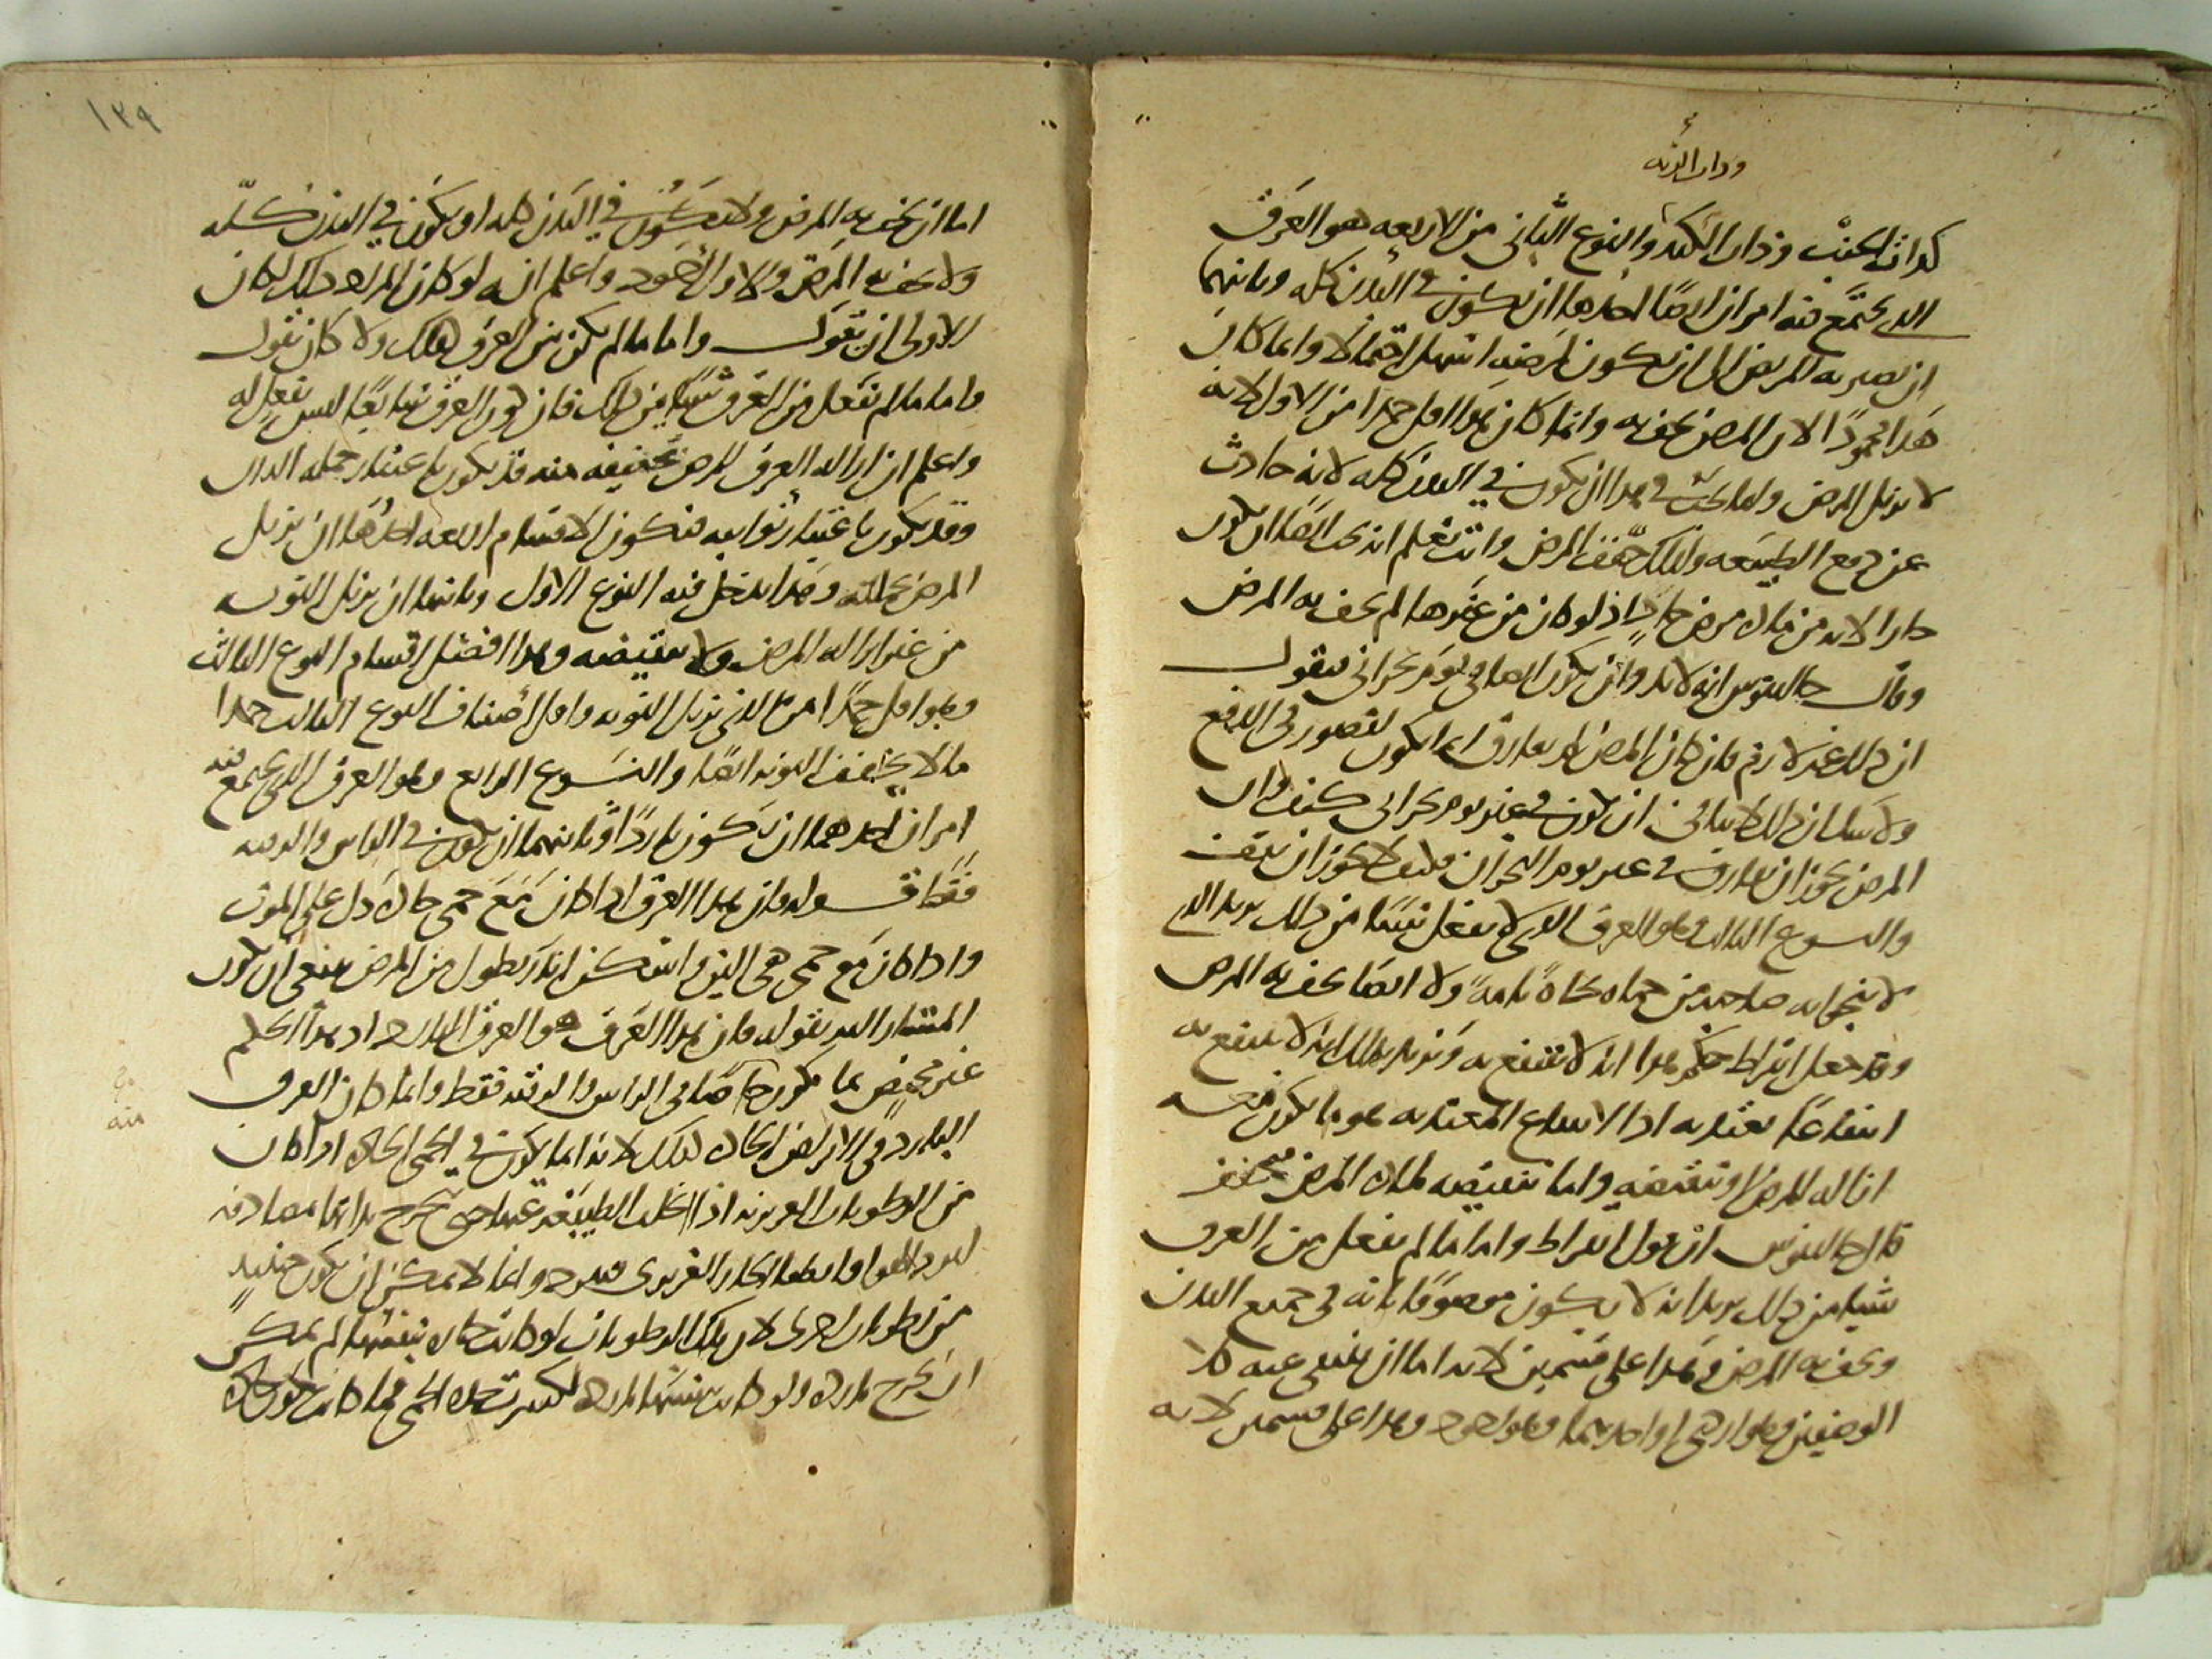 وذات الرئه
كذات الجنب وذات الكبد والنوع الثاني من الاربعه هو العرق
الذي يجتمع فيه امران ايضا احدهما ان يكون في البدن كله وثانيهما
ان يصير به المريض الى ان يكون لمرضه اسهل احتمالا وانما كان
هذا محمودا لان المرض يخف به وانما كان هذا اقل حمدا من الاول لانه
لا يزيل المرض وانما يجب في هذا ان يكون في البدن كله لانه حادث
عن دفع الطبيعه ولذلك خفف المرض وانت تعلم انه يجب ايضا ان يكون
حارا لانه من ماده مرض حاد اذ لو كان من غيرها لم يخف به المرض
وقال جالينوس انه لابد وان يكون ايضا في يوم بحراني فنقول
ان ذلك غير لازم فان كان المرض لم يفارق انما يكون لقصور في الدفع
ولا شك ان ذلك لا ينافي ان يكون في غير يوم بحراني كيف وان
المرض يجوز ان يفارق في غير يوم البحران فكيف لا يجوز ان يخف
والنوع الثالث وهو العرق الذي لا يفعل شيئا من ذلك يريد الذي
لا ينجوا به صاحبه من حماه نجاة تامة ولا ايضا يخف به المرض
وقد جعل ابقراط حكم هذا انه لا ينتفع به ويريد بذلك انه لا ينتفع به
انتفاعا يعتد به اذ الانتفاع المعتد به هو ما يكون فيه
ازاله للمرض او تنقيصه واما تنقيصه لماده المرض
قال جالينوس ان قول ابقراط واما ما لم يفعل من العرق
شيئا من ذلك يريد انه لا يكون موصوفا بانه في جميع البدن
ويخف به المرض وهذا على قسمين لانه اما ان ينتفي عنه كلا
الوصفين وهو اردى او احدهما وهو اجود وهذا على قسمين لانه
١٢٩
اما ان يخف به المرض ولا يكون في البدن كله او يكون في البدن كله
ولا يخف به المرض والاول اجود واعلم انه لو كان المراد ذلك لكان
الاولى ان يقول واما ما لم يكن من العرق هكذا ولا كان يقول
واما ما لم يفعل من العرق شيئا من ذلك فان كون العرق شايعا ليس بفعل له
واعلم ان ازاله العرق للمرض وتخفيفه منه قد يكون باعتبار جمله الدال
وقد يكون باعتبار نوائبه فتكون الاقسام اربعه احدها ان يزيل
المرض بجملته وهذا يدخل فيه النوع الاول وثانيها ان يزيل النوبه
من غير ازاله المرض ولا تنقيصه وهذا افضل اقسام النوع الثالث
وهو اقل حمدا من الذي يزيل النوبه واقل اصناف النوع الثالث حمدا
ما لا يخفف النوبه ايضا والنوع الرابع وهو العرق الذي يجتمع فيه
امران احدهما ان يكون باردا وثانيهما ان يكون في الراس والرقبه
فقط قوله فان هذا العرق اذا كان مع حمى حاده دل على الموت
واذا كان مع حمى هي الين واسكن انذر بطول من المرض ينبغي ان يكون
المشار اليه بقوله فان هذا العرق هو العرق البارد اذ هذا الحكم
غير مختص بما يكون خاصا في الراس والرقبه فقط وانما كان العرق
البارد في الامراض الحاده كذلك لانه انما يكون في الحمى الحاده اذا كان
من الرطوبات الغريزيه اذا تخلت الطبيعه عنها حتى تخرج
وانما لا يمكن ان يكون حينئذ
من رطوبات اخرى لان تلك الرطوبات لو كانت حاره بنفسها لم يمكن
ان تخرج بارده ولو كانت بنفسها بارده